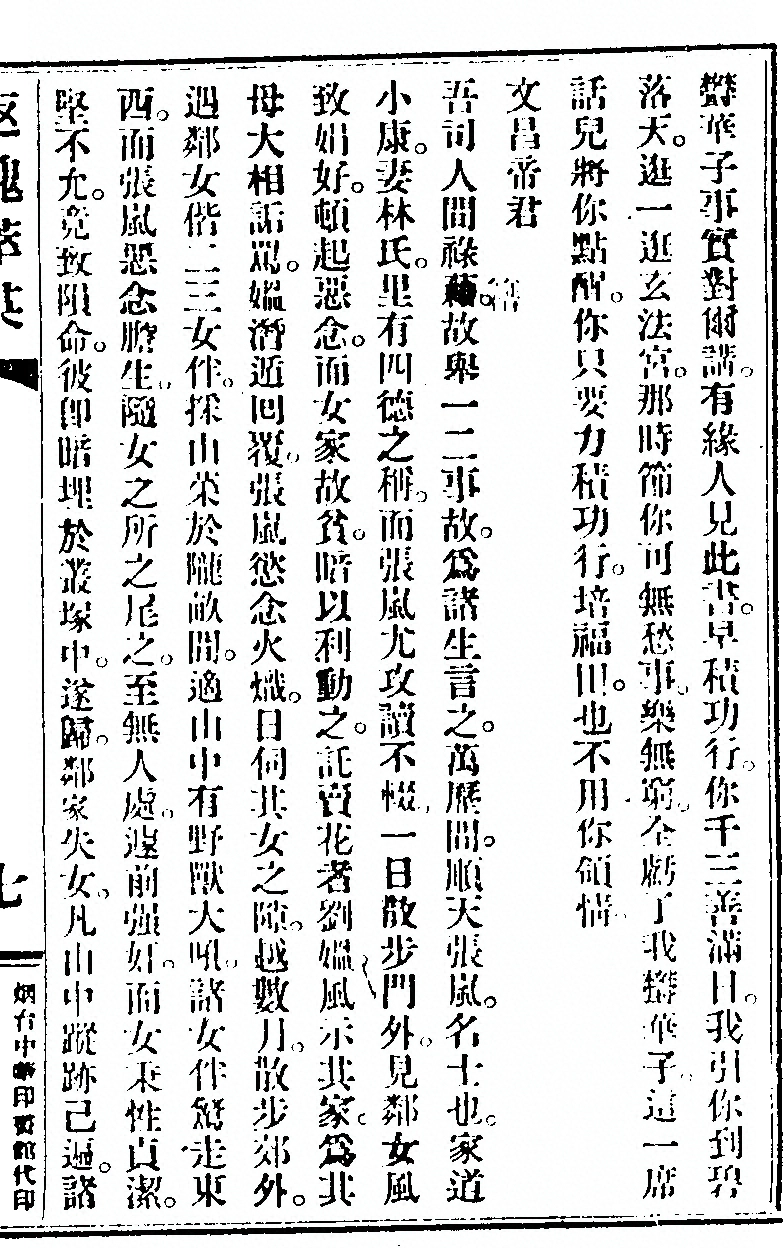 華子事實對爾講。有緣人見此書。早積功行。你千三善滿日。我引你到碧
落天。逛一逛玄法宮。那時節你可無愁事。樂無窮。全虧了我華子。這一席
話兒將你點醒。你只要力積功行。培福田。也不用你領情。
文昌帝君
吾司人間祿籍。故舉一二事故。爲諸生言之。萬歷間。順天張嵐。名士也。家道
小康。妻林氏。里有四德之稱。而張嵐尤攻讀不輟。一日散步門外。見鄰女風
致娟好。頓起惡念。而女家故貧。暗以利動之。託賣花者劉媼風示其家。爲其
母大相詬罵。媼潛遁回覆。張嵐慾念火熾。日伺其女之隙。越數月。散步郊外。
遇鄰女偕二三女伴。採山菜於隴畝間。適山中有野獸大吼。諸女伴驚走東
西。而張嵐惡念膽生。隨女之所之尾之。至無人處。遽前强奸。而女秉性貞潔。
堅不允。竟致隕命。彼卽暗埋於叢塚中。遂歸。鄰家失女。凡山中蹤跡已遍。諸
七
烟台中華印書館代印